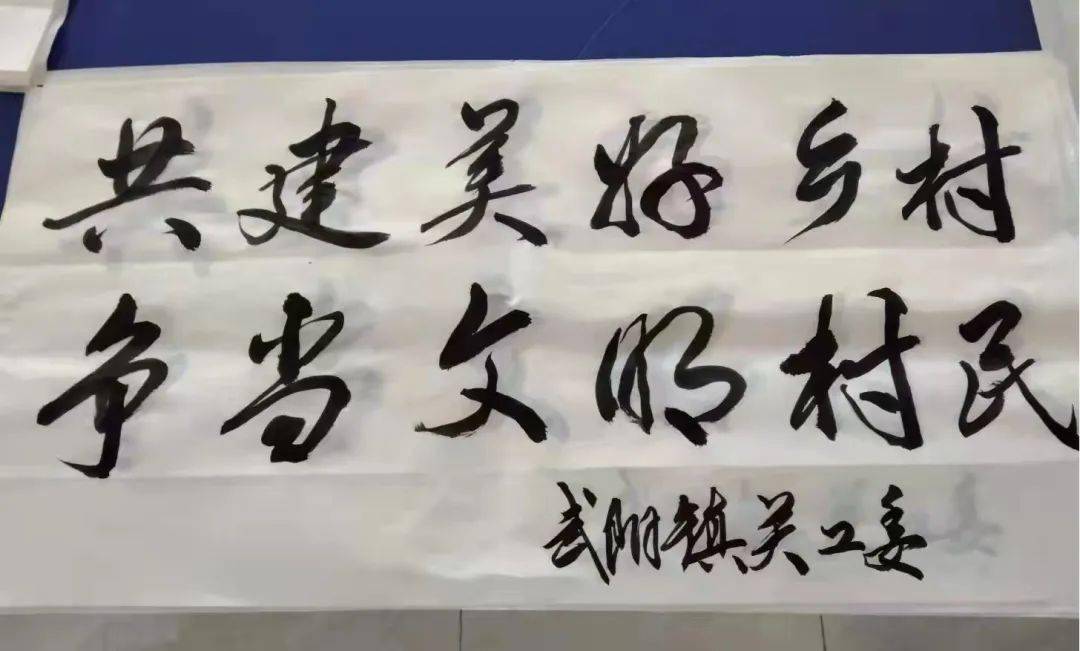 共建美好乡村
争当文明村民
武阳镇关工委